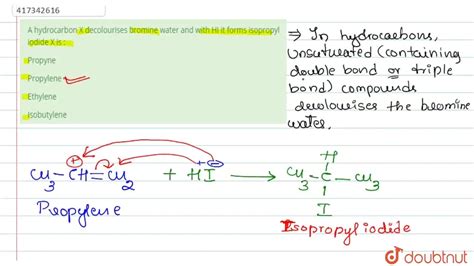 417342616
A hydrocarbon X decolourises bromine water and with HI it forms isopropyl
iodide X is :
Propyne
Propylene
Ethylene
Isobutylene
⇒ In hydrocarbons,
Unsaturated (containing
double bond or triple
bond) compounds
decolourises the bromine
water.
CH3 - CH = CH2 + HI → CH3 - C - CH3
+ + - H I
Propylene
Isopropyl iodide
doubtnut